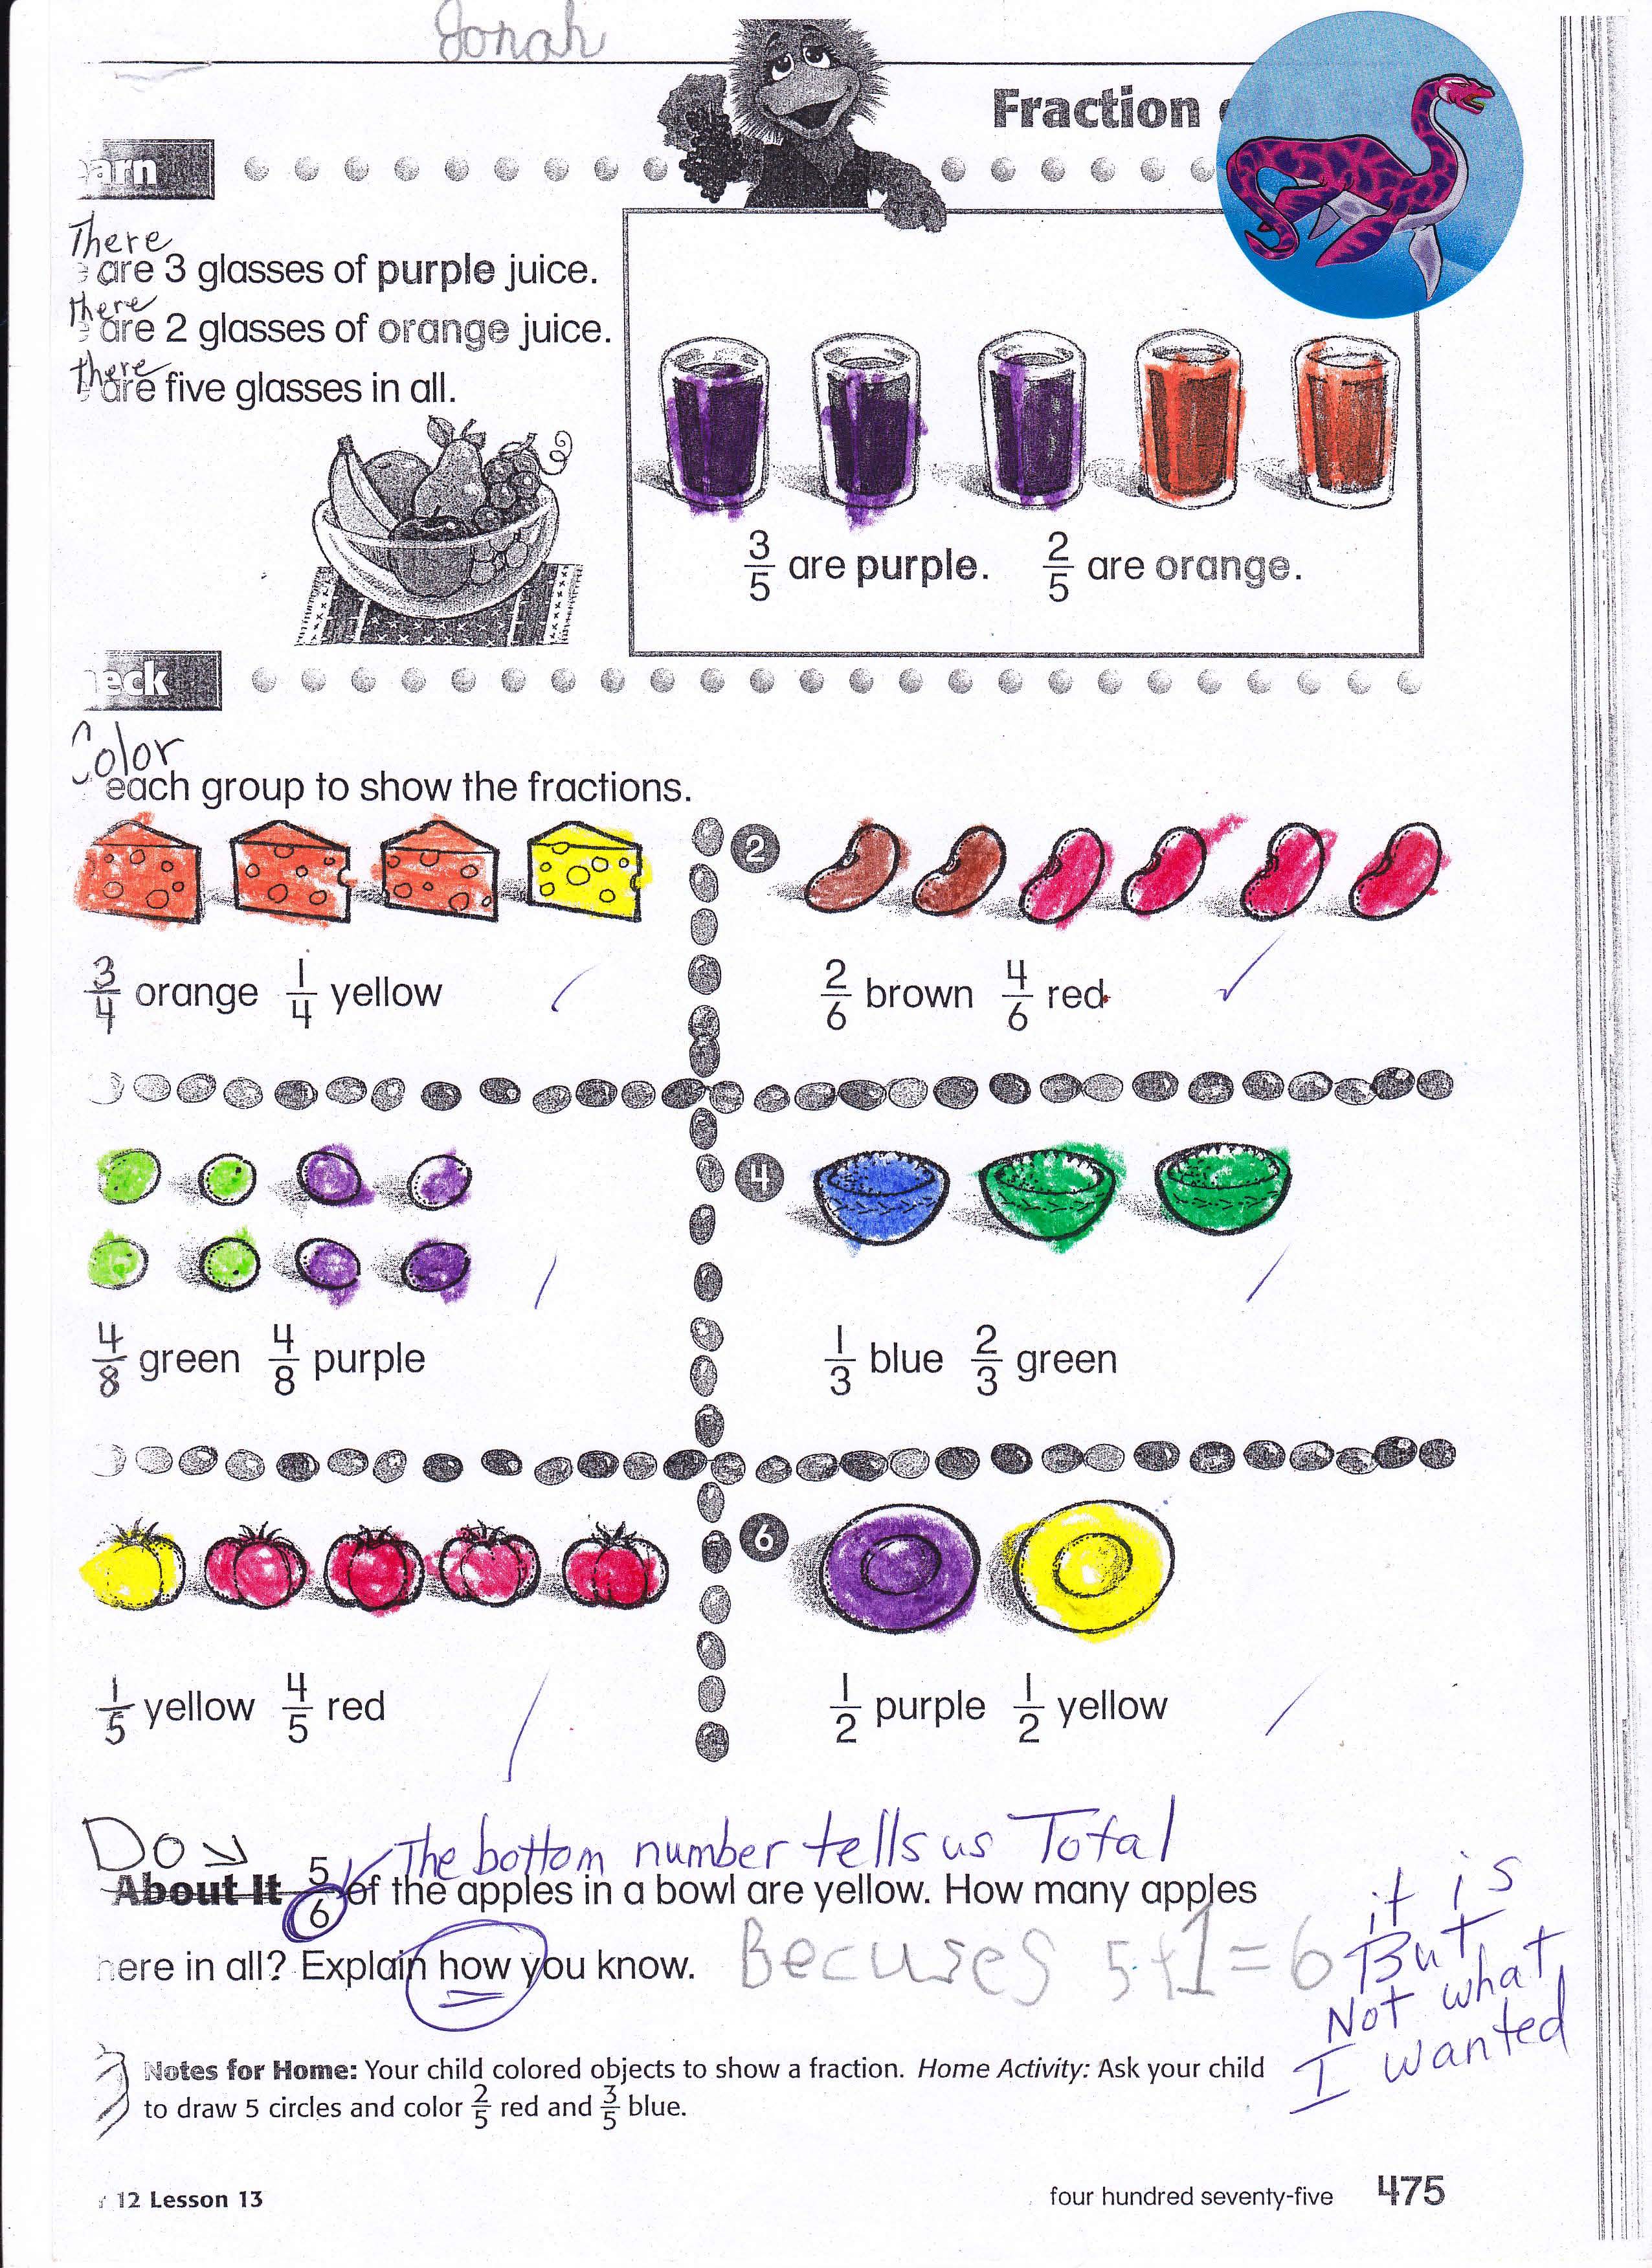 Jonah
Fraction
earn
There
are 3 glasses of purple juice.
there
are 2 glasses of orange juice.
there
are five glasses in all.
3/5 are purple. 2/5 are orange.
eck
Color
each group to show the fractions.
2
3/4 orange 1/4 yellow
2/6 brown 4/6 red
4
4/8 green 4/8 purple
1/3 blue 2/3 green
6
1/5 yellow 4/5 red
1/2 purple 1/2 yellow
Do
The bottom number tells us Total
About It 5/6 of the apples in a bowl are yellow. How many apples
here in all? Explain how you know.
Becuses 5+1=6
it is
But
Not what
I wanted
Notes for Home: Your child colored objects to show a fraction. Home Activity: Ask your child
to draw 5 circles and color 2/5 red and 3/5 blue.
12 Lesson 13
four hundred seventy-five 475